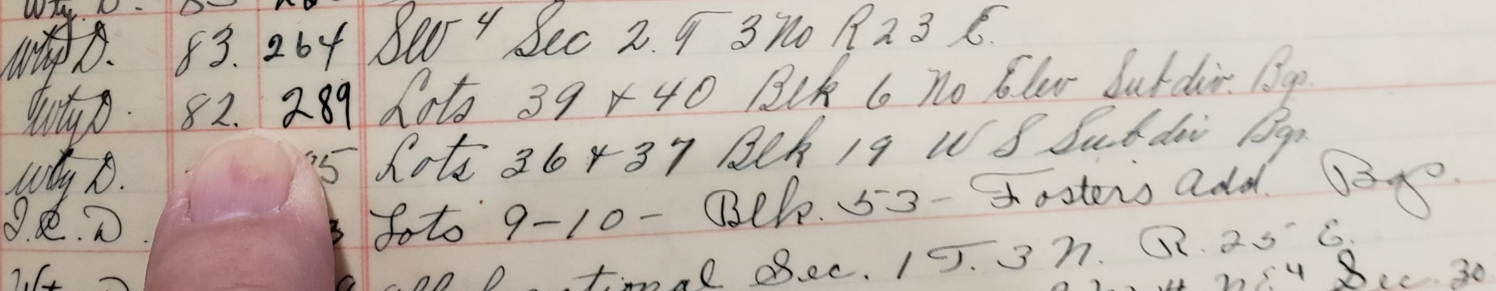 Wty D. 83. 264 SW 4 Sec 2. T 3 No R 23 E.
Wty D. 82. 289 Lots 39 & 40 Blk 6 No Elev Subdiv. Bgs.
Wty D. 5 Lots 36 & 37 Blk 19 W S Subdiv Bgs.
Q.C.D. 3 Lots 9-10- Blk. 53- Fosters Add. Bgs.
Wty D all fractional Sec. 1 T. 3 N. R. 25 E.
NE 4 Sec. 30